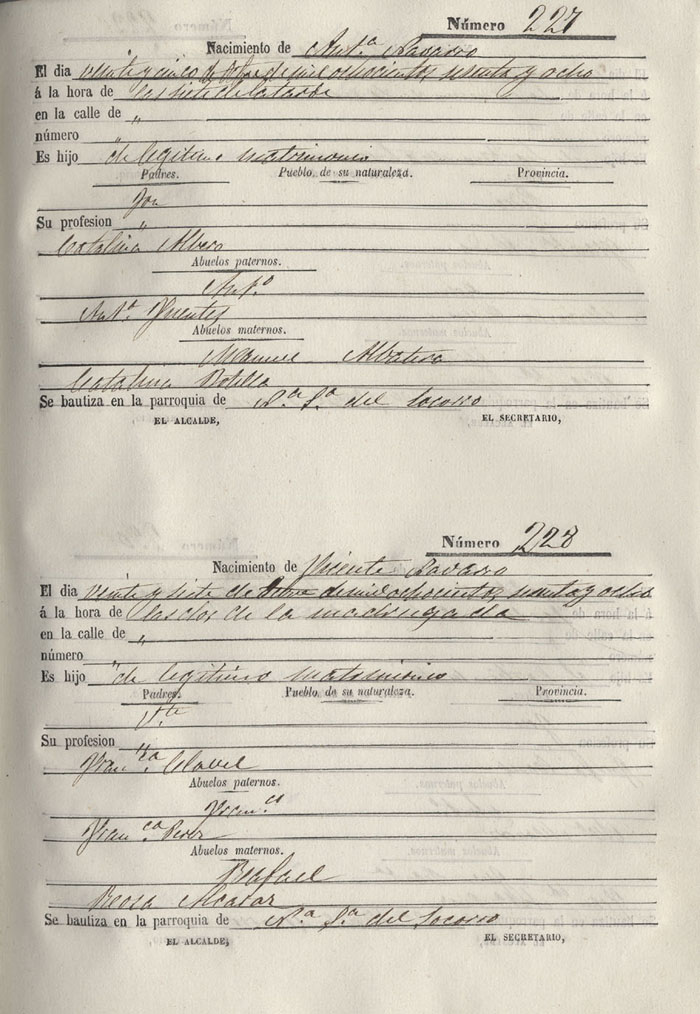 Número 227
Nacimiento de Ant.ª Navarro
El dia veinte y cinco de mil ochocientos sesenta y ocho
á la hora de las siete de la tarde
en la calle de "
número "
Es hijo de legitimo matrimonio
Padres. Pueblo de su naturaleza. Provincia.
Su profesion "
Catalina Albero
Abuelos paternos.
Ant.º
Ant.ª Fuentes
Abuelos maternos.
Manuel
Catalina Botella
Se bautiza en la parroquia de N.ª S.ª del Socorro
EL ALCALDE, EL SECRETARIO,
Número 228
Nacimiento de Vicente Navarro
El dia veinte y siete de de mil ochocientos sesenta y ocho
á la hora de las dos de la madrugada
en la calle de "
número "
Es hijo de legitimo matrimonio
Padres. Pueblo de su naturaleza. Provincia.
V.te
Su profesion "
Fran.ca Clavel
Abuelos paternos.
Fran.co
Fran.ca Perez
Abuelos maternos.
Rafael
Rosa Alcaraz
Se bautiza en la parroquia de N.ª S.ª del Socorro
EL ALCALDE, EL SECRETARIO,